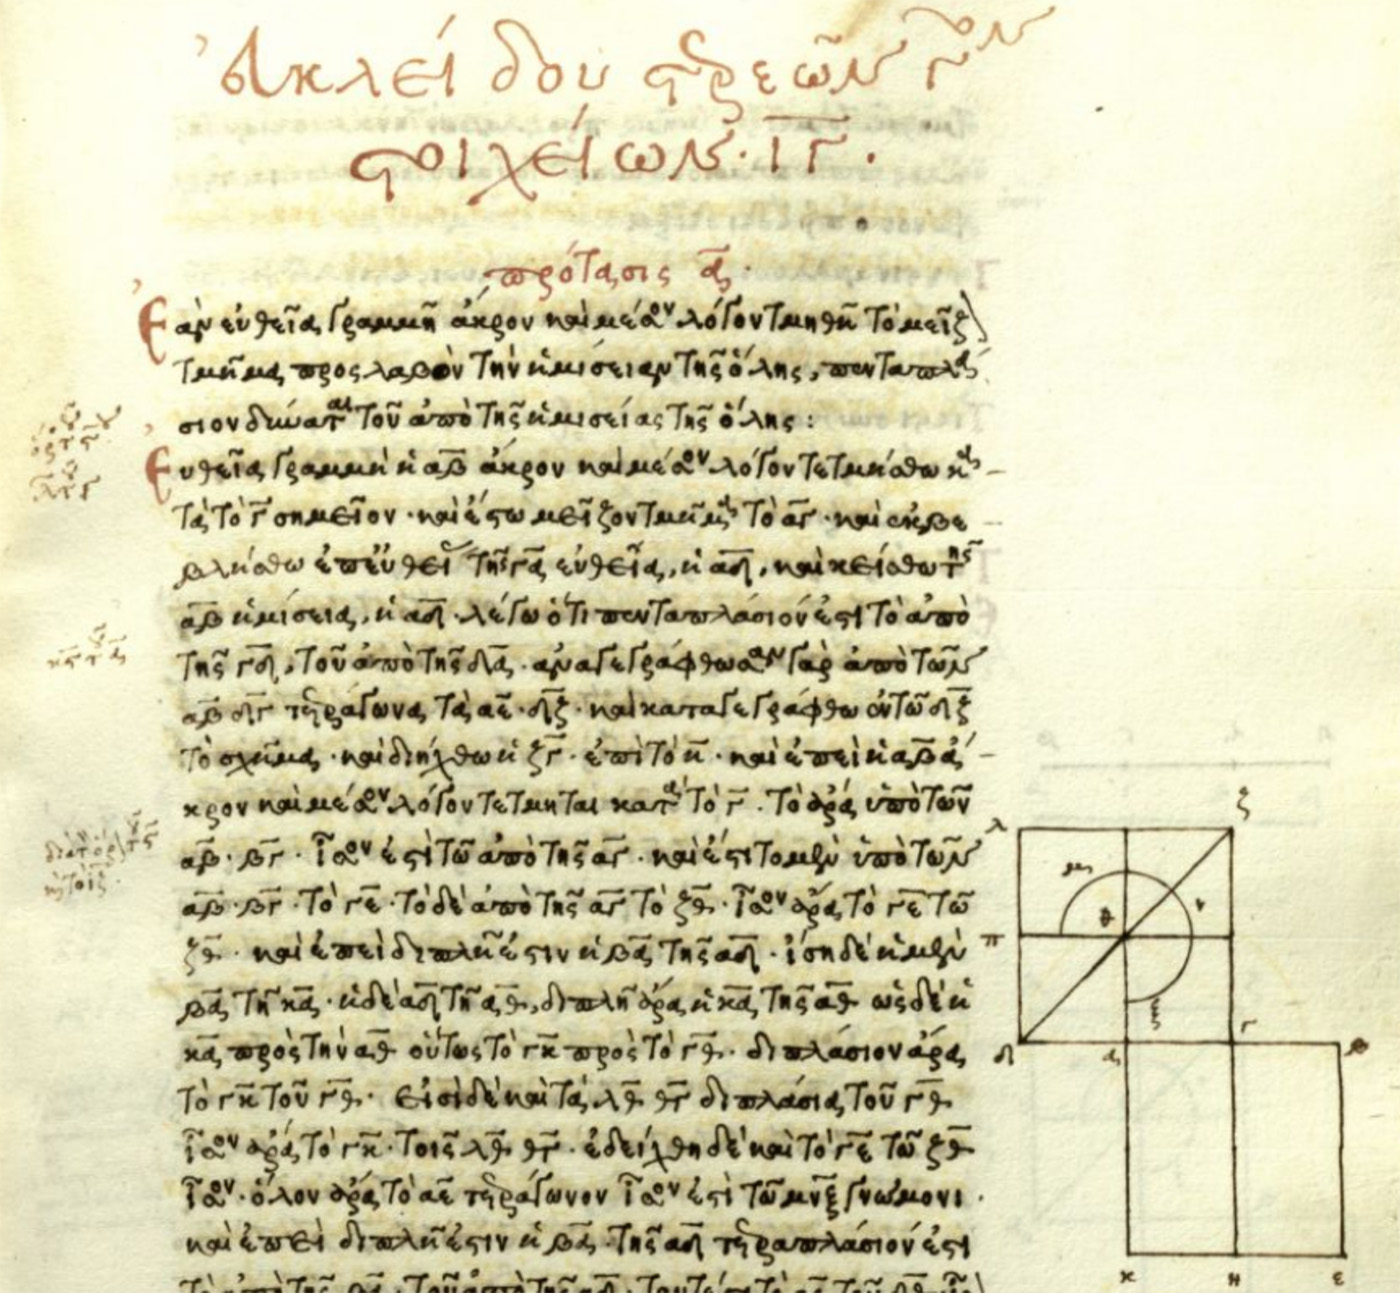 Εὐκλείδου στερεῶν
στοιχείων. ιγ.
πρότασις α
Ἐὰν εὐθεῖα γραμμὴ ἄκρον καὶ μέσον λόγον τμηθῆ τὸ μεῖζ
τμῆμα προσλαβὸν τὴν ἡμίσειαν τῆς ὅλης, πενταπλά
σιον δύναται τοῦ ἀπὸ τῆς ἡμισείας τῆς ὅλης:
Εὐθεῖα γραμμὴ ἡ αβ ἄκρον καὶ μέσον λόγον τετμήσθω κα
τὰ τὸ γ σημεῖον · καὶ ἔστω μεῖζον τμῆμα τὸ αγ · καὶ ἐκβε
βλήσθω ἐπ' εὐθείας τῆς γα εὐθεῖα, ἡ αδ, καὶ κείσθω τῆς
αβ ἡμίσεια, ἡ αδ · λέγω ὅτι πενταπλάσιόν ἐστι τὸ ἀπὸ
τῆς γδ, τοῦ ἀπὸ τῆς δα · ἀναγεγράφθωσαν γὰρ ἀπὸ τῶν
αβ δγ τετράγωνα τὰ αε · δζ · καὶ καταγεγράφθω ἐν τῶ δζ
τὸ σχῆμα · καὶ διήχθω ἡ ζγ · ἐπὶ τὸ η · καὶ ἐπεὶ ἡ αβ ἄ
κρον καὶ μέσον λόγον τέτμηται κατὰ τὸ γ · τὸ ἄρα ὑπὸ τῶν
αβ · βγ · ἴσον ἐστὶ τῶ ἀπὸ τῆς αγ · καὶ ἔστι τὸ μὲν ὑπὸ τῶν
αβ · βγ · τὸ γε · τὸ δὲ ἀπὸ τῆς αγ τὸ ζθ · ἴσον ἄρα τὸ γε τῶ
ζθ · καὶ ἐπεὶ διπλῆ ἐστιν ἡ βα τῆς αδ · ἴση δὲ ἡ μὲν
βα τῆ κα · ἡ δὲ αδ τῆ αθ, διπλῆ ἄρα ἡ κα τῆς αθ ὡς δὲ ἡ
κα πρὸς τὴν αθ οὕτως τὸ γκ πρὸς τὸ γθ · διπλάσιον ἄρα
τὸ γκ τοῦ γθ · εἰσὶ δὲ καὶ τὰ λθ θγ διπλάσια τοῦ γθ
ἴσον ἄρα τὸ γκ · τοῖς λθ θγ · ἐδείχθη δὲ καὶ τὸ γε τῶ ζθ
ἴσον · ὅλον ἄρα τὸ αε τετράγωνον ἴσον ἐστὶ τῶ μνξ γνώμονι ·
καὶ ἐπεὶ διπλῆ ἐστιν ἡ βα · τῆς αδ τετραπλάσιόν ἐστι
λ
ζ
μ
θ
ν
π
ξ
δ
α
γ
β
κ
η
ε